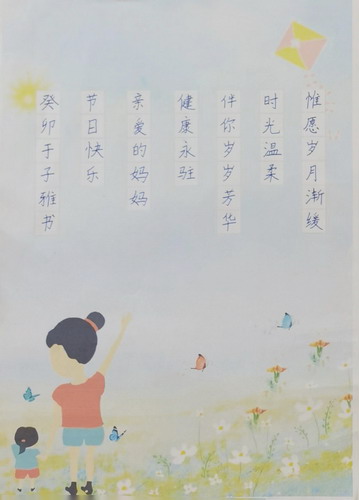 惟愿岁月渐缓
时光温柔
伴你岁岁芳华
健康永驻
亲爱的妈妈
节日快乐
癸卯于子雅书